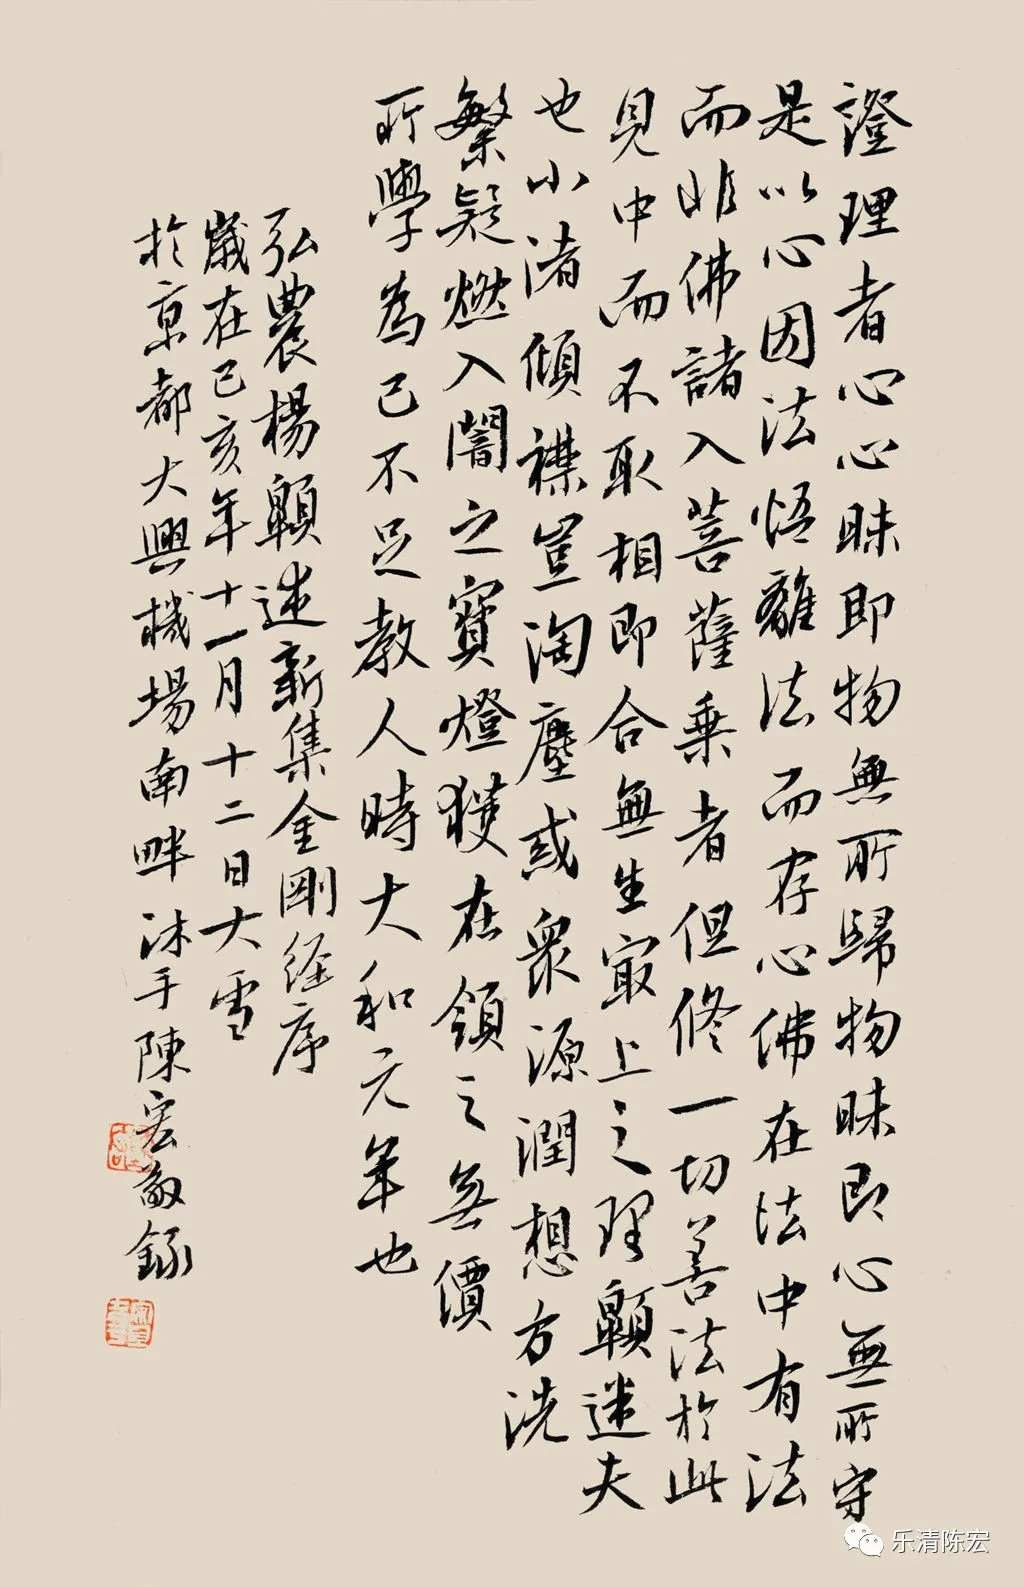 證理者心心昧即物無所歸物昧即心無所守
是以心因法悟離法而存心佛在法中有法
而非佛諸入菩薩乘者但修一切善法於此
見中而不取相即合無生寂上之理顒迷夫
也小渚傾襟豈淘塵惑衆源潤想方洗
繁疑燃入闇之寶燈獲在領之無價
所學為己不足教人時大和元年也
弘農楊顒述新集金剛經序
歲在己亥年十一月十二日大雪
於京都大興機場南畔沐手陳宏敬錄
乐清陈宏